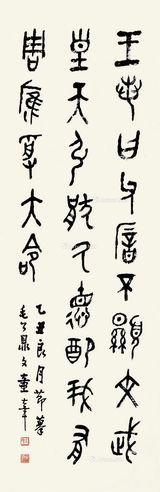 王若曰父㕌不顯文武
皇天弘猒厥德配我有
周膺受大命
乙丑良月節摹
毛公鼎文